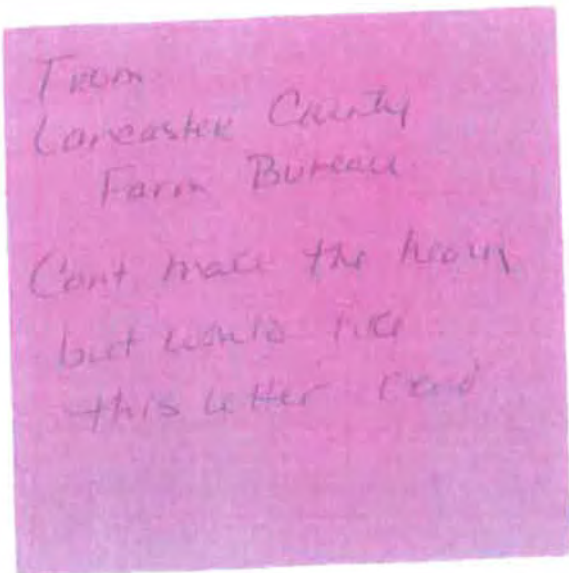 From
Lancaster County
Farm Bureau
Cant make the hearing
but would like
this letter read